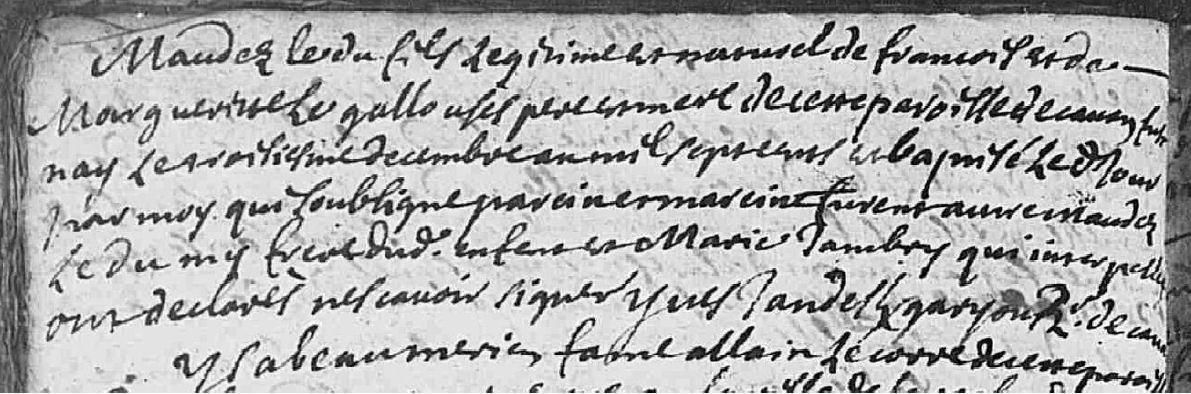 Maudez le du fils Legitime et naturel de francois et de
Margueritte Le gallou ses pere et mere de cette paroisse de cauan fut
nay Le troisiesme decembre an mil sept cents et baptisé Le d jour
par moy qui soubsigne parein et mareine furent autre maudez
Le du my frere dud. enfent et Marie Jambry qui interpelles
ont declarés ne scavoir signer yves
ysabeau merien fame allain Le corre de cette paroiss